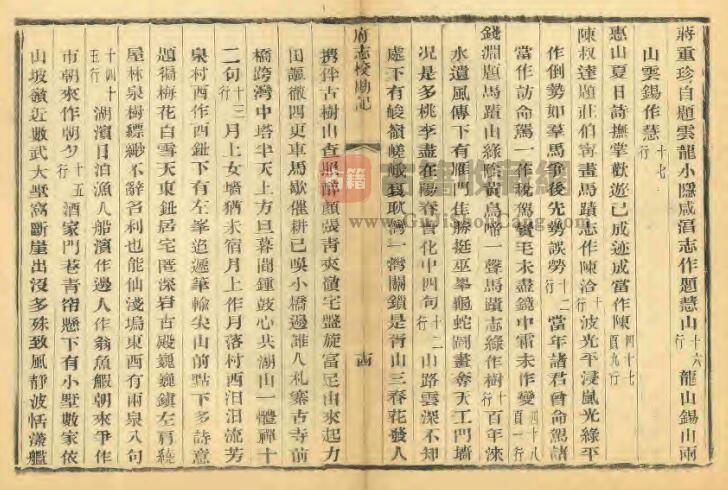 蔣重珍自題雲龍小隱咸淳志作題慧山十六行龍山錫山兩
山雲錫作慧十七行
惠山夏日詩撫掌歡遊已成迹成當作陳四十七頁九行
陳叔達題莊伯甯畫馬蹟志作陳洽十行波光平浸嵐光綠平
作倒勢如羣馬爭後先勢誤勞十二行當年諸君會命駕諸
當作訪命駕一作稅駕賓毛未盡鏡中霜未作變四十八頁一行
錢淵題馬蹟山綠陰黃鳥啼一聲馬蹟志綠作樹十行百年淶
水遺風傳下有雁門佳勝挺巫峯龜蛇圖畫奪天工門墻
況是多桃李盡在陽春喜化中四句十二行山路雲深不知
處下有峻嶺嶢峨耿灣一灣關鎖是胥山三春花發人
府志校勘記
西
携伴古樹山查照醉顏張青夾嶺宅盤旋富足山來起力
田謳徹四更車馬歇催耕已吳小橋邊誰人札寨古寺前
橋跨灣中塔半天上方旦暮聞鍾鼓心共湖山一體禪十
二句十三行月上女墻猶未宿月上作月落村西汨汨流芳
泉村西作西鈕下有左峯迢遞筆輪尖山前點下多詩意
題徧梅花白雪天東鈕居宅匿深岩古殿巍巍鎮左肩繞
屋林泉樹縹緲不辭名利也能仙淺塢東西有兩泉八句
十四十五行湖濱日泊漁人船濱作邊人作翁魚鰕朝來爭作
市朝來作朝夕十五行酒家門巷青帘懸下有小墅數家依
山坡嶺近數武大墅窩斷崖出沒多殊致風靜波恬漾艦
古籍
古書收藏網
GuJiShouCang.Com